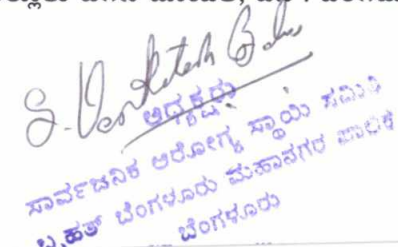 S. Venkatesh Babu
ಅಧ್ಯಕ್ಷರು
ಸಾರ್ವಜನಿಕ ಆರೋಗ್ಯ ಸ್ಥಾಯಿ ಸಮಿತಿ
ಬೃಹತ್ ಬೆಂಗಳೂರು ಮಹಾನಗರ ಪಾಲಿಕೆ
ಬೆಂಗಳೂರು